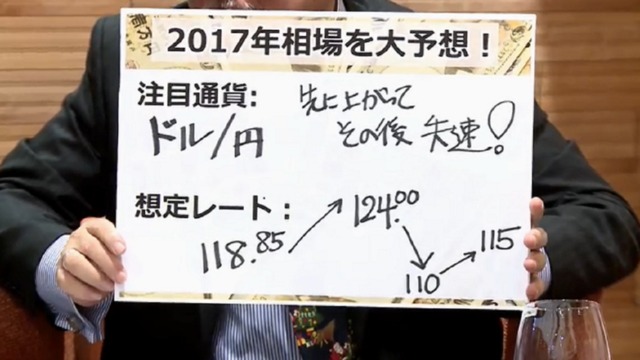 2017年相場を大予想！
注目通貨:
ドル/円
先に上がって
その後 失速!
想定レート：
118.85
124.00
110
115